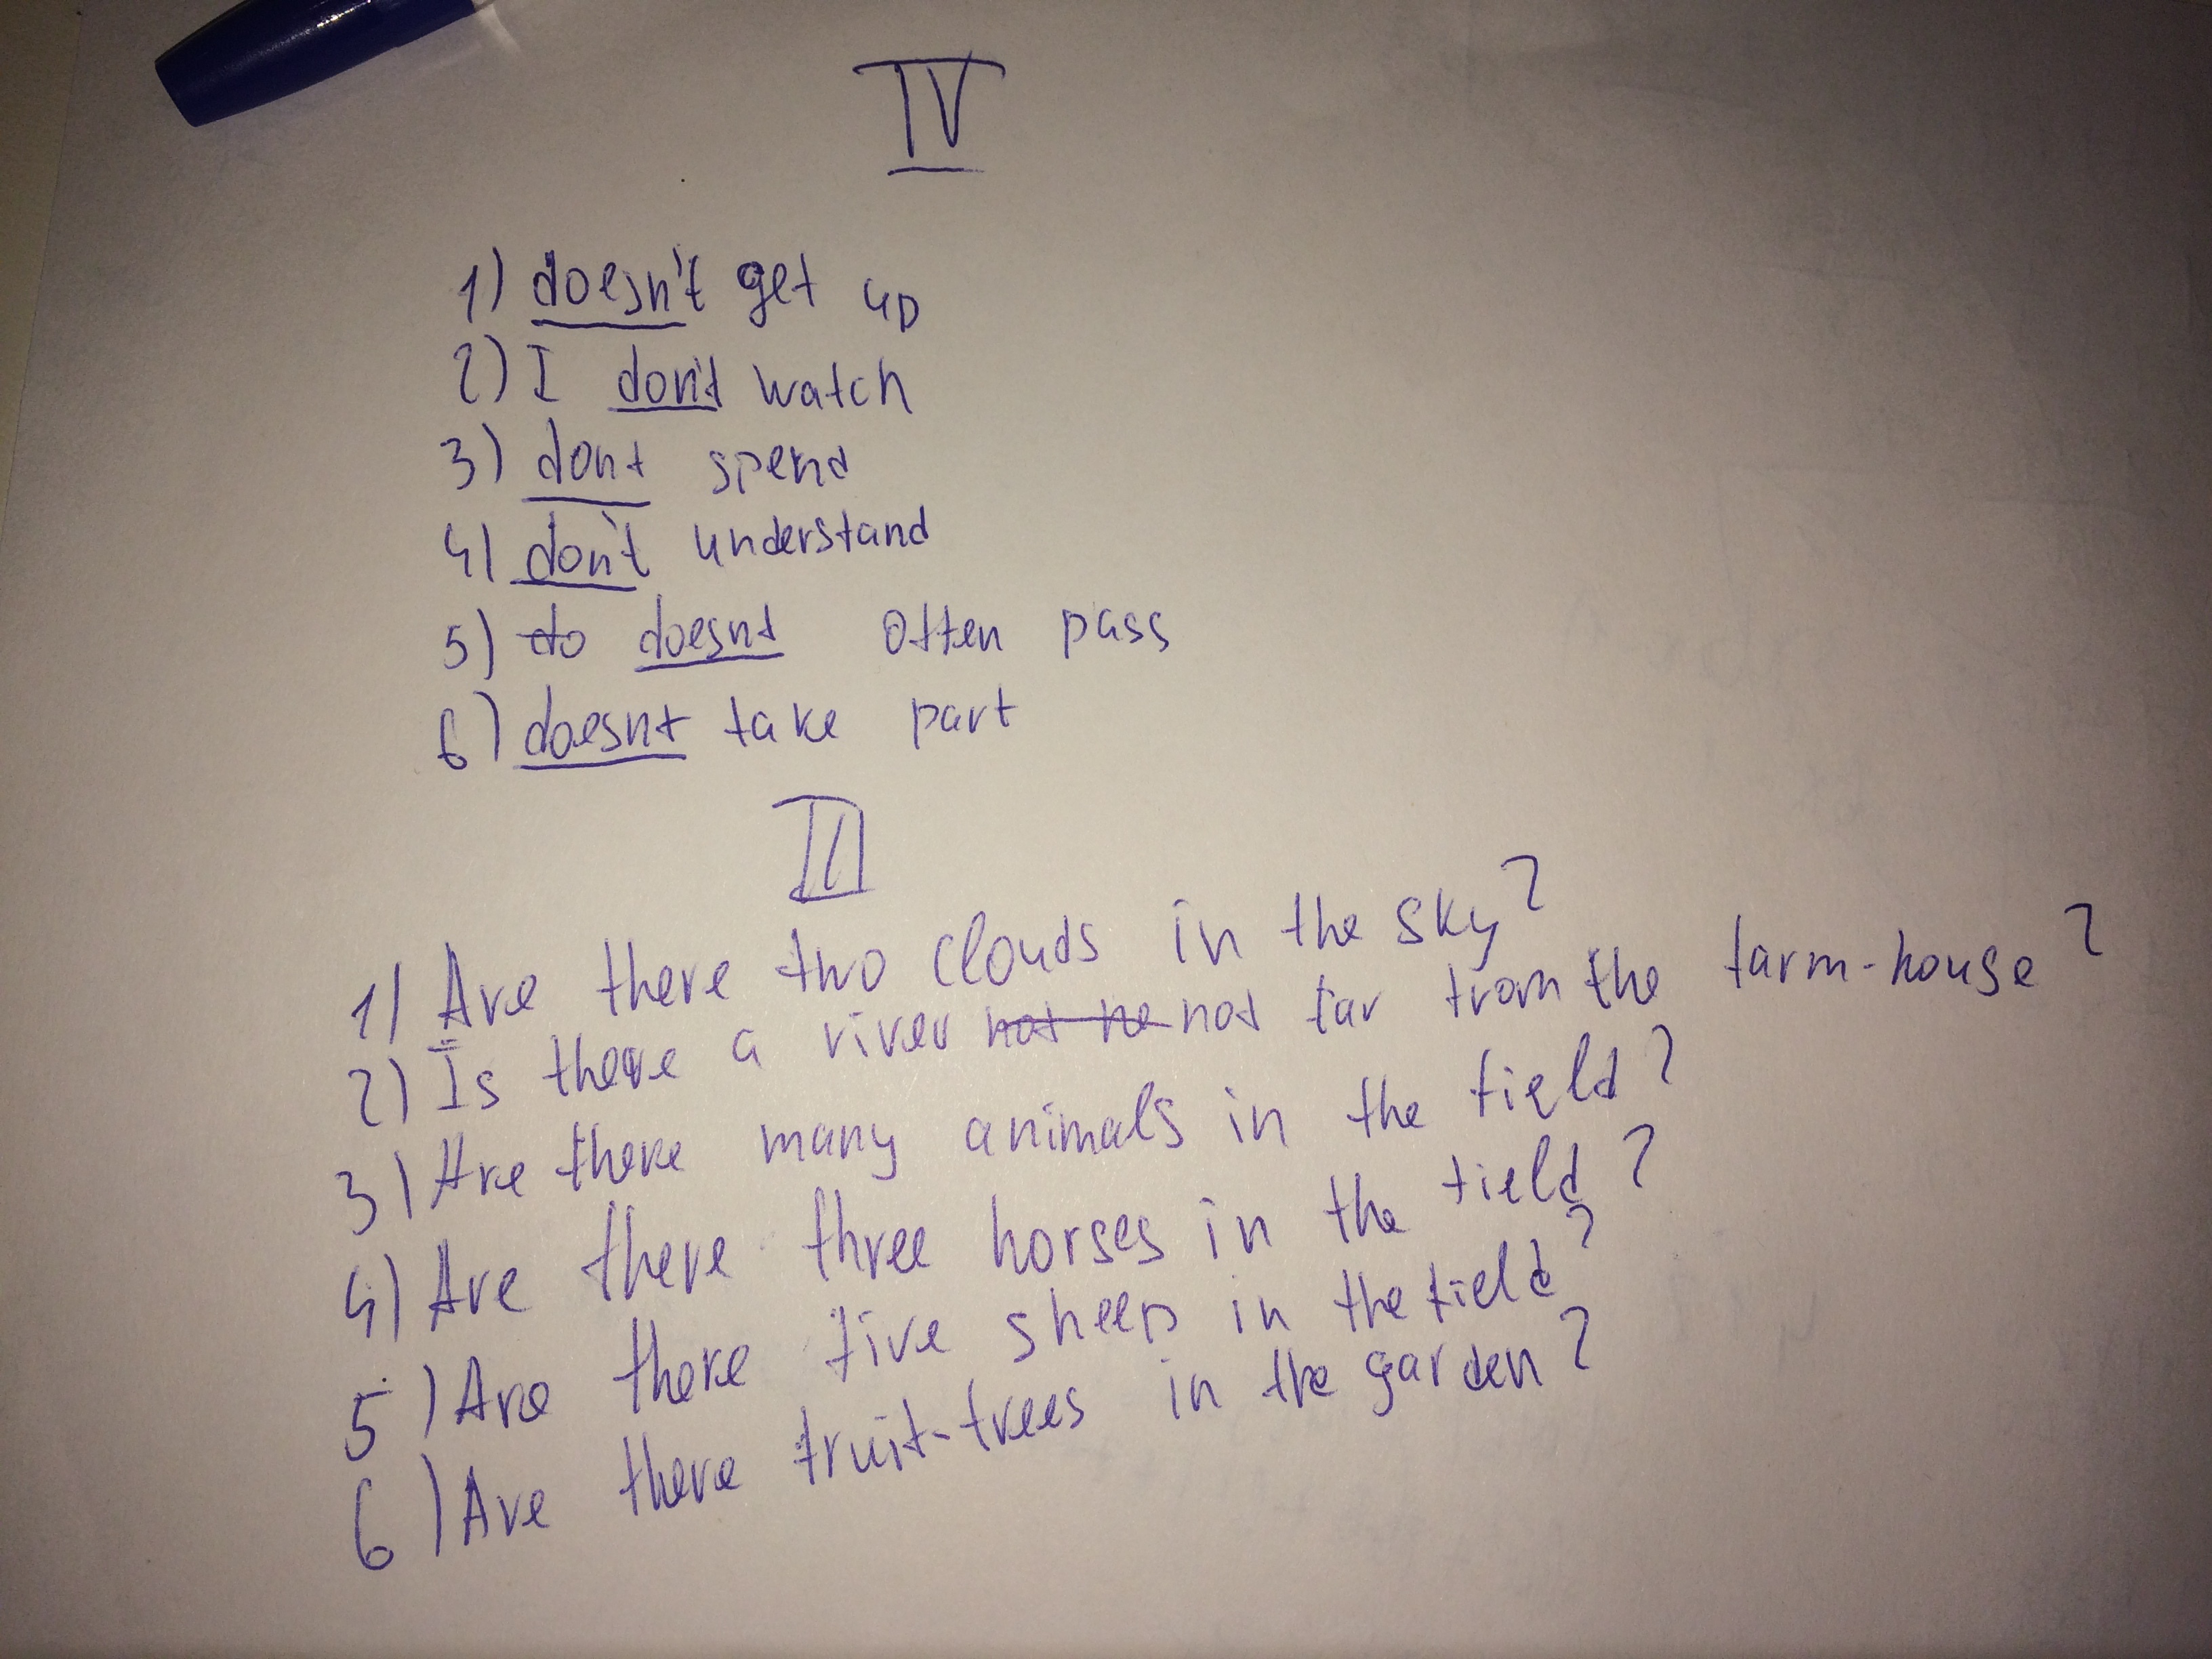 IV
1) doesn't get up
2) I don't watch
3) dont spend
4) don't understand
5) do doesnt often pass
6) doesnt take part
II
1) Are there two clouds in the sky?
2) Is there a river not ne not far from the farm-house?
3) Are there many animals in the field?
4) Are there three horses in the field?
5) Are there five sheep in the field?
6) Are there fruit-trees in the garden?